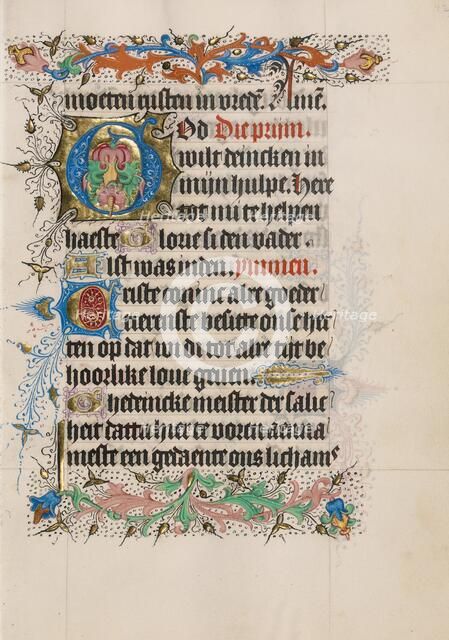 moeten rusten in vrede. Amē.
God Die prijm.
wilt deincken in
mijn hulpe. Here
tot mi te helpen
haeste Glorie si den vader.
Alst was inden. ymmen.
alre goeder
tieren ste besitte onse her
ten op dat wi di tot alre tijt be
hoorlike loue geuen.
Ghedeincke meister der salic
heit dattu hier te voren
meste een gedaente ons lichams